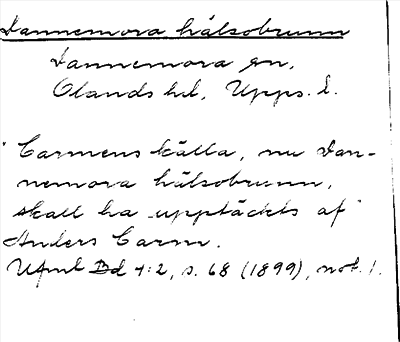 Dannemora hälsobrunn
Dannemora sn,
Olands hd, Upps. l.
"Carmens källa, nu Dan-
nemora hälsobrunn,
skall ha upptäckts af
Anders Carm.
Bd 4:2, s. 68 (1899), not. 1.